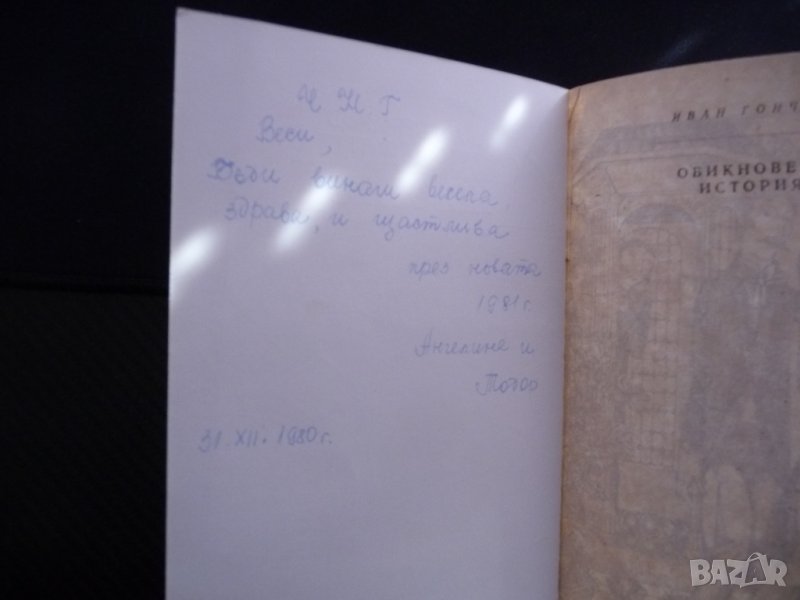 Ч Н. Г
Веси,
Бъди винаги весела,
здрава, и щастлива
през новата
1981 г.
Ангелина и
31. XII. 1980 г.
ИВАН ГОНЧ
ОБИКНОВЕ
ИСТОРИЯ
BAZAR